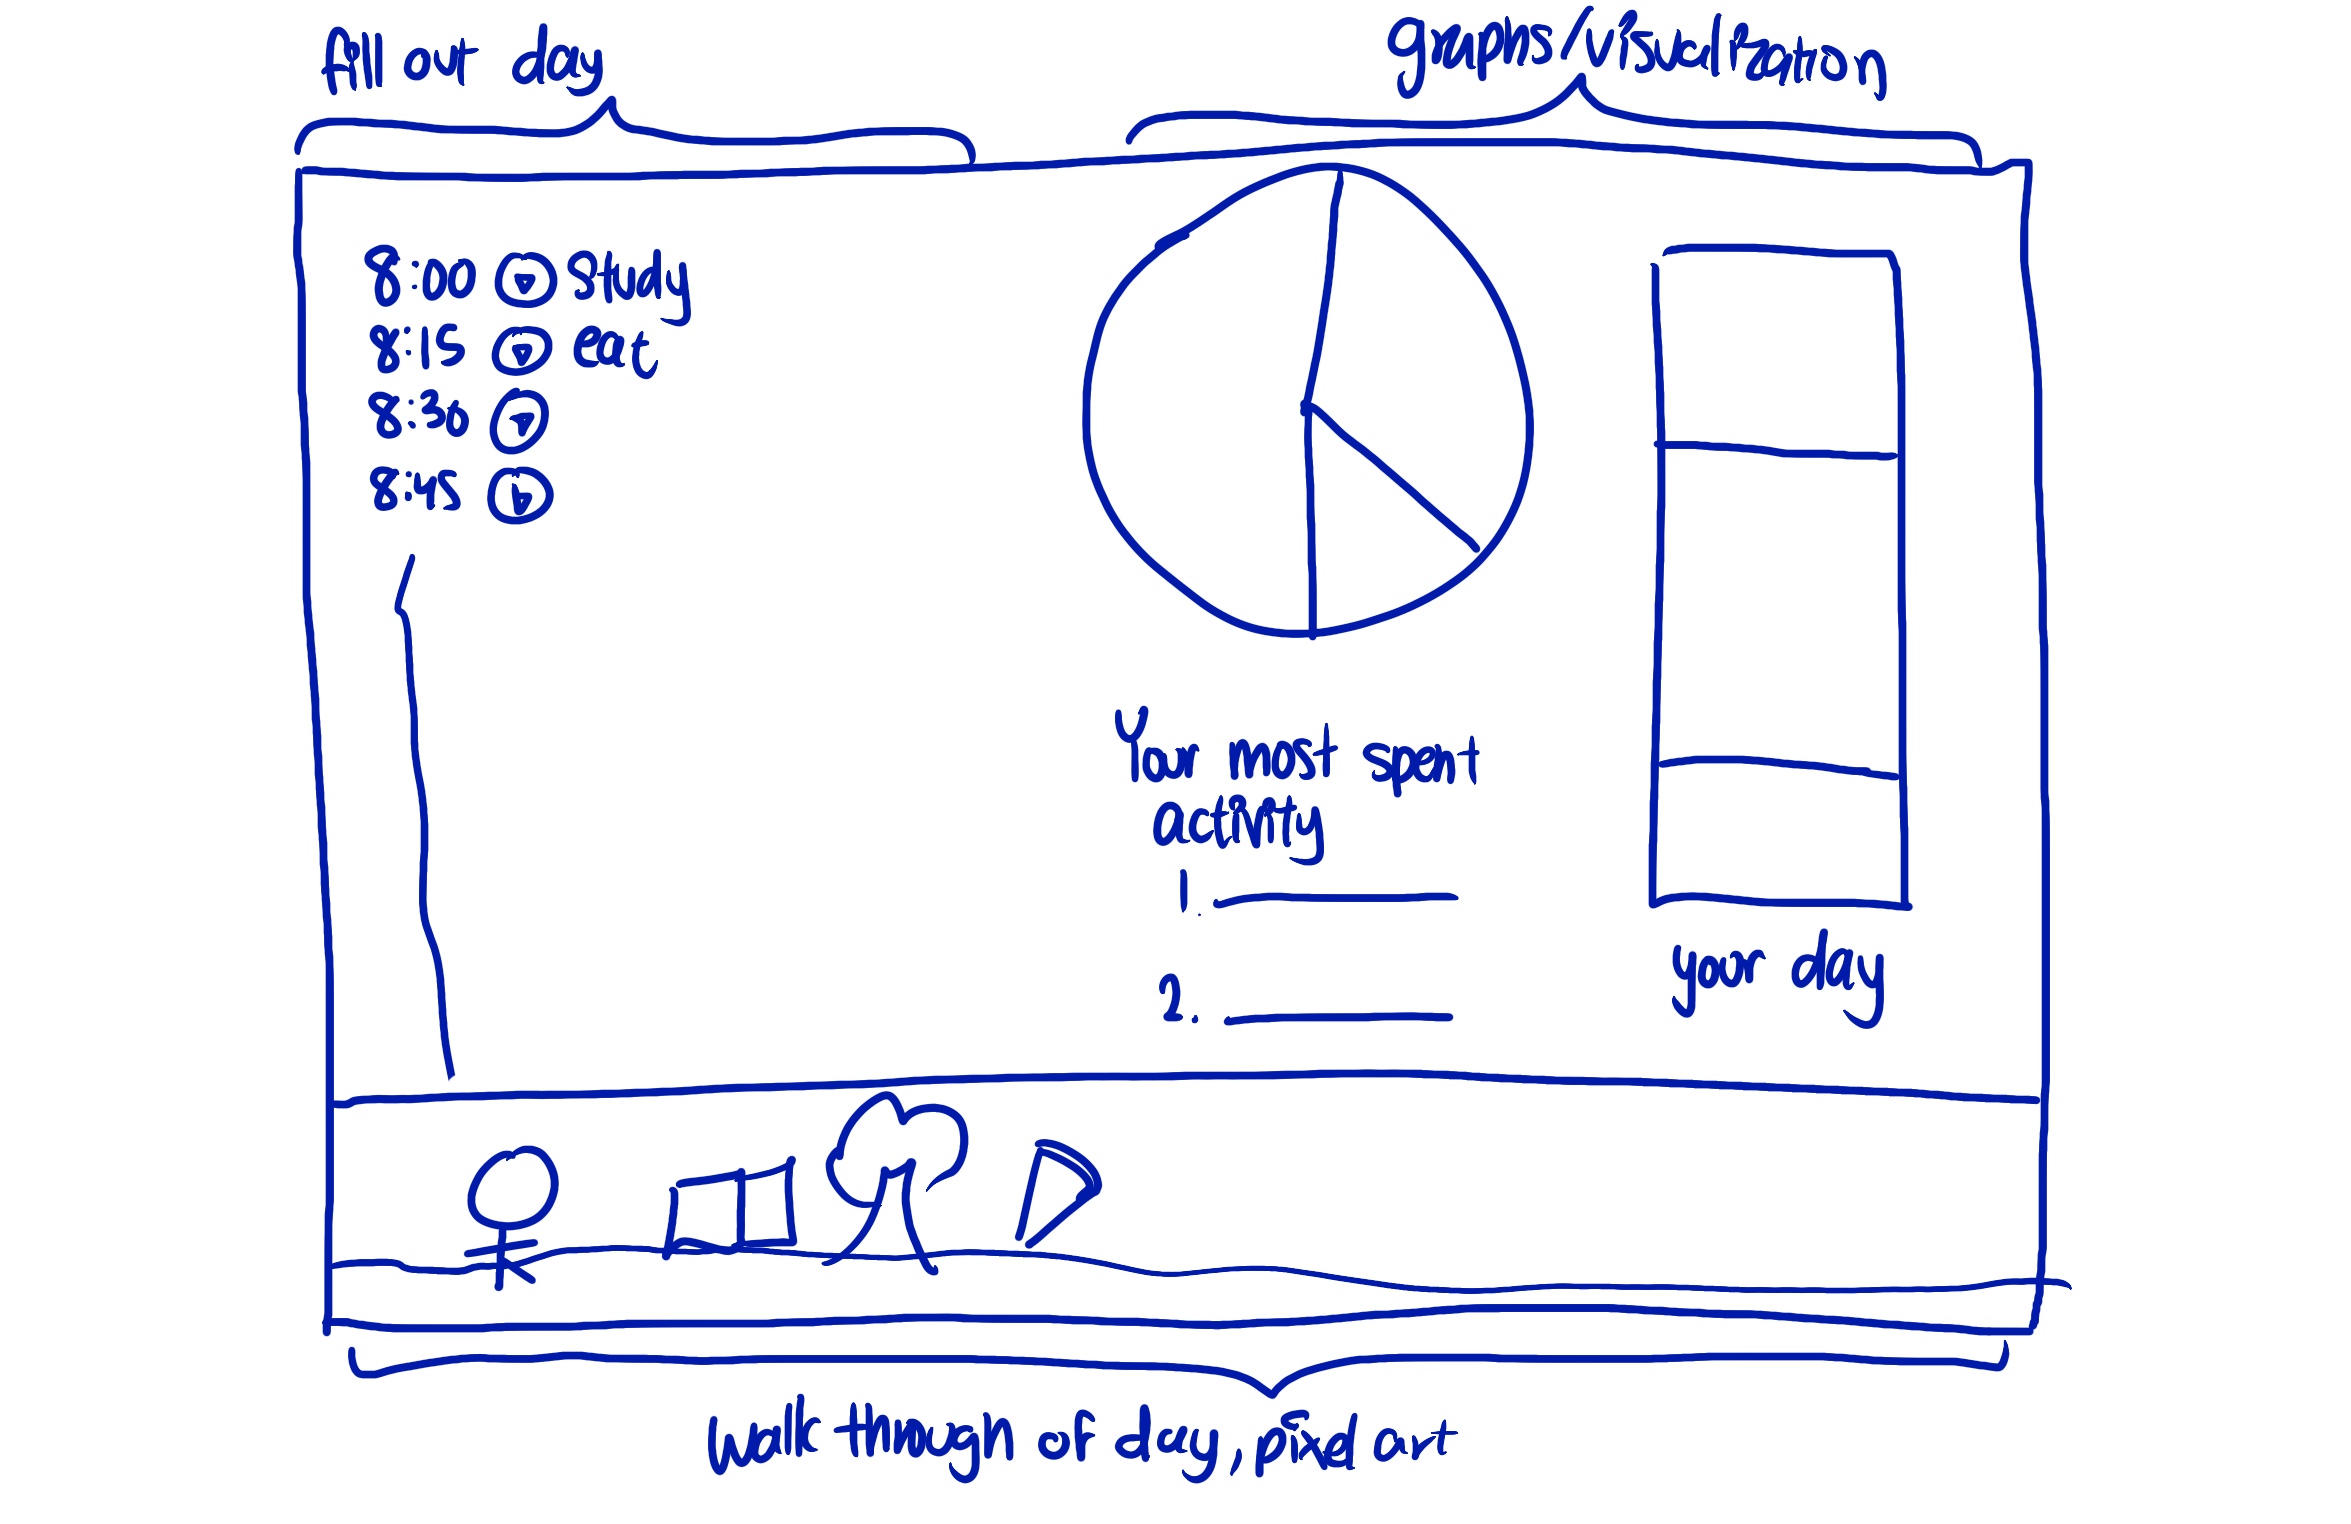 fill out day
graphs/visualization
8:00 study
8:15 eat
8:30
8:45
Your most spent
activity
1.
2.
your day
walk through of day, pixel art